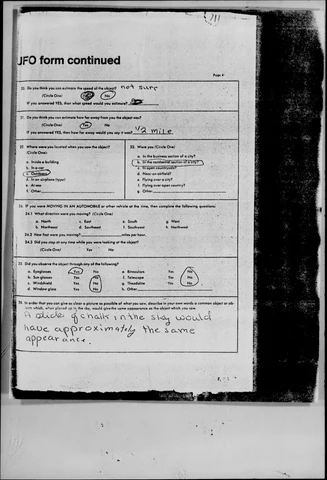 UFO form continued
Page 4
20. Do you think you can estimate the speed of the object? not sure
(Circle One) Yes No
If you answered YES, then what speed would you estimate?
21. Do you think you can estimate how far away from you the object was?
(Circle One) Yes No
If you answered YES, then how far away would you say it was? 1/2 mile
22. Where were you located when you saw the object?
(Circle One)
a. Inside a building
b. In a car
c. Outdoors
d. In an airplane (type)
e. At sea
f. Other
23. Were you (Circle One)
a. In the business section of a city?
b. In the residential section of a city?
c. In open countryside?
d. Near an airfield?
e. Flying over a city?
f. Flying over open country?
g. Other
24. If you were MOVING IN AN AUTOMOBILE or other vehicle at the time, then complete the following questions:
24.1 What direction were you moving? (Circle One)
a. North c. East e. South g. West
b. Northeast d. Southeast f. Southwest h. Northwest
24.2 How fast were you moving? miles per hour.
24.3 Did you stop at any time while you were looking at the object?
(Circle One) Yes No
25. Did you observe the object through any of the following?
a. Eyeglasses Yes No e. Binoculars Yes No
b. Sun glasses Yes No f. Telescope Yes No
c. Windshield Yes No g. Theodolite Yes No
d. Window glass Yes No h. Other
26. In order that you can give as clear a picture as possible of what you saw, describe in your own words a common object or ob-
jects which, when placed up in the sky, would give the same appearance as the object which you saw.
A slide of chalk in the sky would
have approximately the same
appearance.